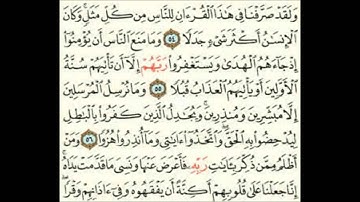 وَلَقَدْ صَرَّفْنَا فِي هَٰذَا الْقُرْءَانِ لِلنَّاسِ مِن كُلِّ مَثَلٍ ۚ وَكَانَ
الْإِنسَٰنُ أَكْثَرَ شَيْءٍ جَدَلًا ٥٤ وَمَا مَنَعَ النَّاسَ أَن يُؤْمِنُوٓا۟
إِذْ جَآءَهُمُ الْهُدَىٰ وَيَسْتَغْفِرُوا۟ رَبَّهُمْ إِلَّآ أَن تَأْتِيَهُمْ سُنَّةُ
الْأَوَّلِينَ أَوْ يَأْتِيَهُمُ الْعَذَابُ قُبُلًا ٥٥ وَمَا نُرْسِلُ الْمُرْسَلِينَ
إِلَّا مُبَشِّرِينَ وَمُنذِرِينَ ۚ وَيُجَٰدِلُ الَّذِينَ كَفَرُوا۟ بِالْبَٰطِلِ
لِيُدْحِضُوا۟ بِهِ الْحَقَّ ۖ وَاتَّخَذُوٓا۟ ءَايَٰتِي وَمَآ أُنذِرُوا۟ هُزُوًا ٥٦ وَمَنْ
أَظْلَمُ مِمَّن ذُكِّرَ بِـَٔايَٰتِ رَبِّهِۦ فَأَعْرَضَ عَنْهَا وَنَسِيَ مَا قَدَّمَتْ يَدَاهُ ۚ
إِنَّا جَعَلْنَا عَلَىٰ قُلُوبِهِمْ أَكِنَّةً أَن يَفْقَهُوهُ وَفِيٓ ءَاذَانِهِمْ وَقْرًا ۖ